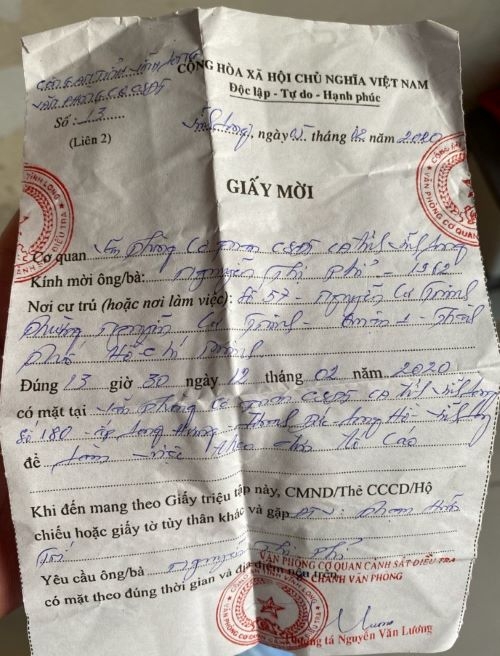 CÔNG AN TỈNH VĨNH LONG
VĂN PHÒNG CQ CSĐT
CỘNG HÒA XÃ HỘI CHỦ NGHĨA VIỆT NAM
Độc lập - Tự do - Hạnh phúc
Số: 13
(Liên 2)
Vĩnh Long, ngày 05 tháng 02 năm 2020
GIẤY MỜI
Cơ quan Văn phòng CQ CSĐT CA tỉnh Vĩnh Long
Kính mời ông/bà: Nguyễn Thị Phỉ - 1962
Nơi cư trú (hoặc nơi làm việc): Số 57 - Nguyễn Cư Trinh
Phường Nguyễn Cư Trinh - Quận 1 - Thành
Phố Hồ Chí Minh
Đúng 13 giờ 30 ngày 12 tháng 02 năm 2020
có mặt tại Văn phòng CQ CSĐT CA tỉnh Vĩnh Long
Số 180 - ấp Long Hưng - Thanh Đức Long Hồ - Vĩnh Long
để Làm việc theo đơn tố cáo
Khi đến mang theo Giấy triệu tập này, CMND/Thẻ CCCD/Hộ
chiếu hoặc giấy tờ tùy thân khác và gặp ĐTV: Phạm
Yêu cầu ông/bà Nguyễn Thị Phỉ
có mặt theo đúng thời gian và địa điểm nêu trên.
VĂN PHÒNG CƠ QUAN CẢNH SÁT ĐIỀU TRA
CHÁNH VĂN PHÒNG
Thượng tá Nguyễn Văn Lương